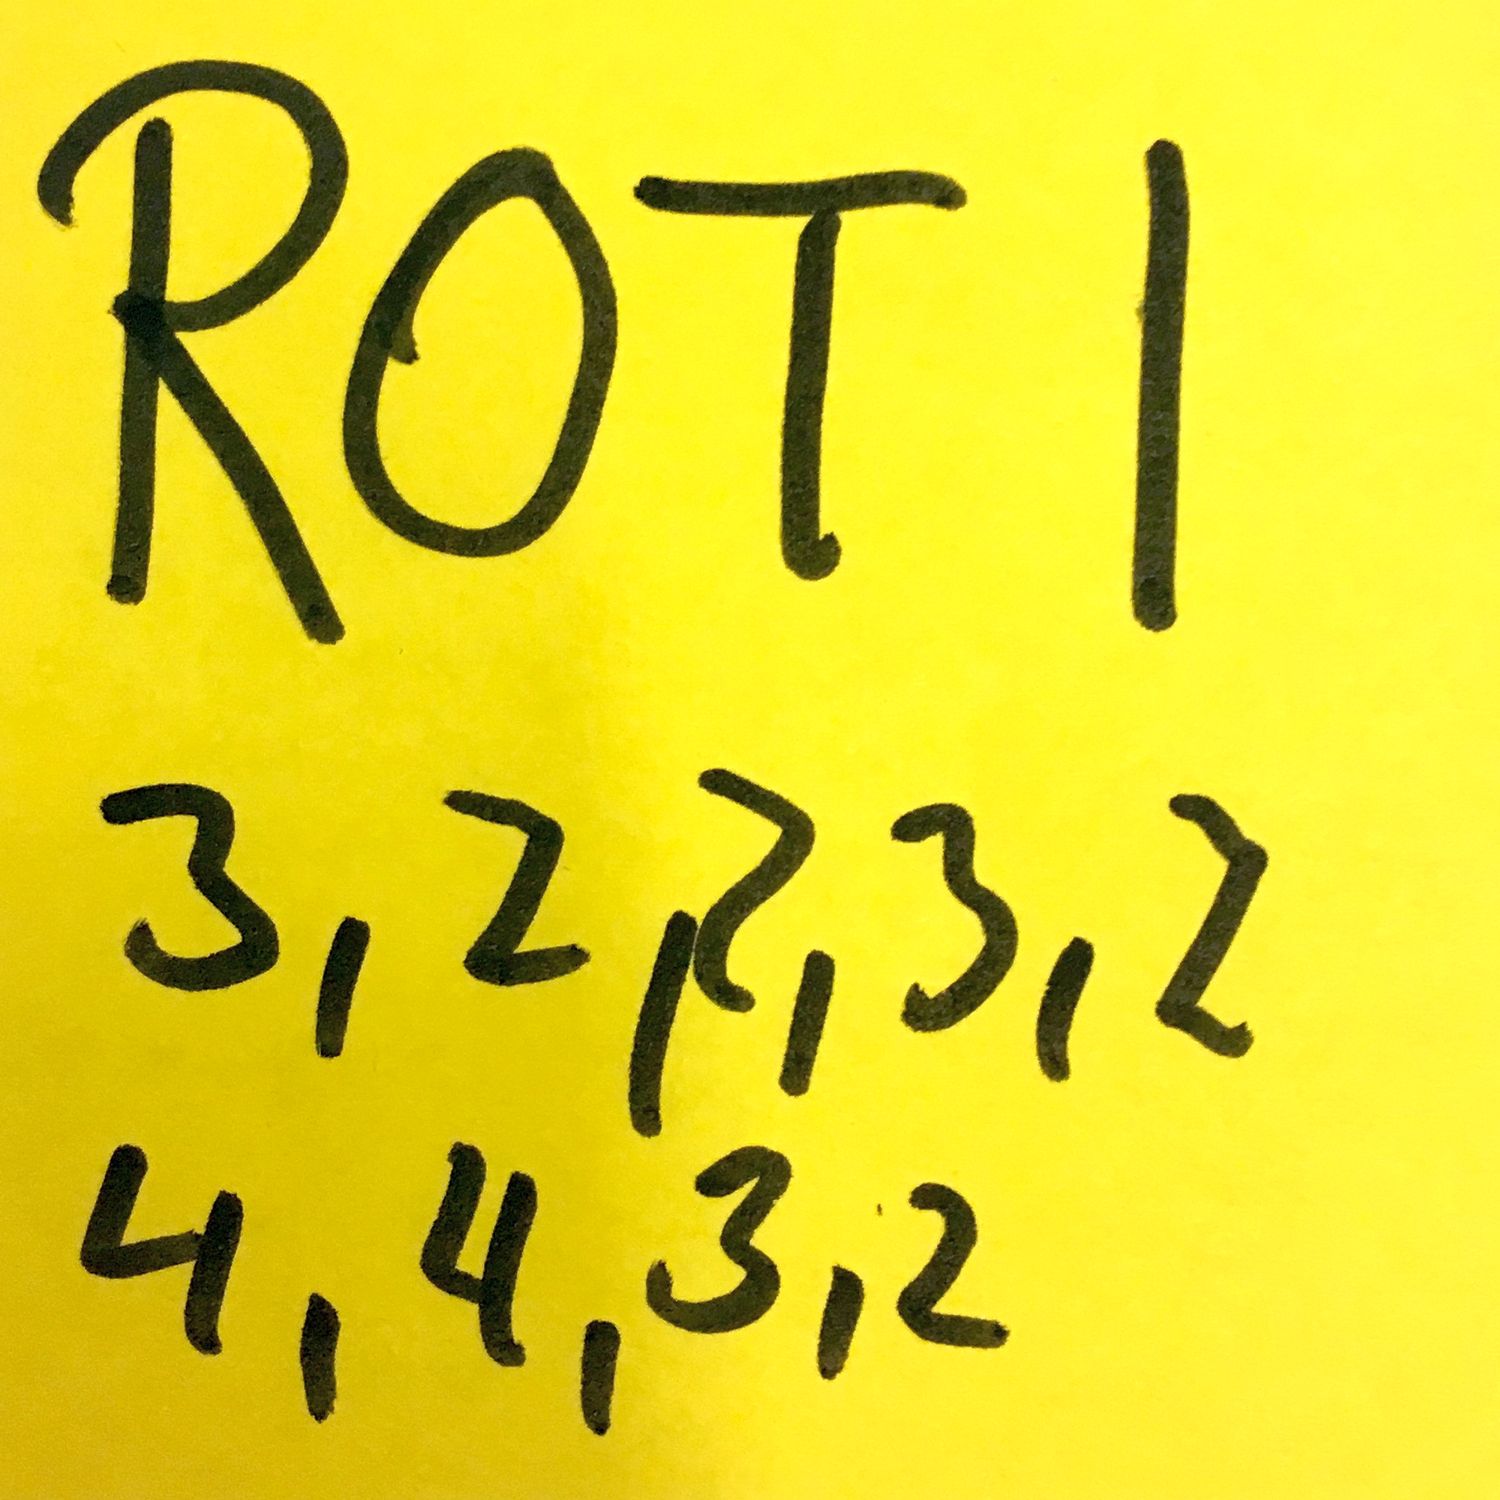 ROT 1
3,2,2,3,2
4,4,3,2